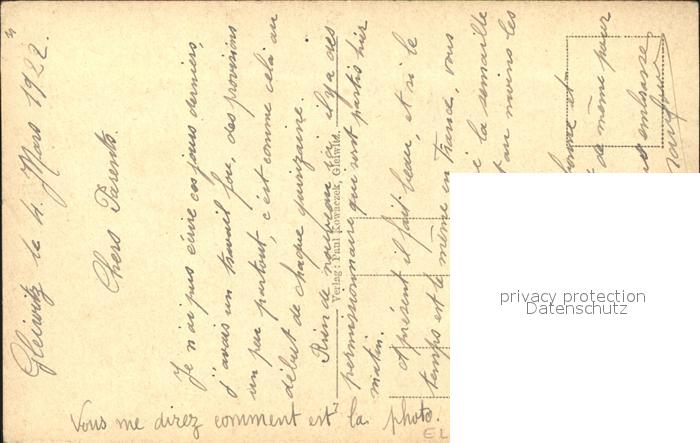 Gleiwitz le 4 Mars 1922.
Chers Parents
Je n'ai pus écrire ces jours derniers,
j'avais un travail fou, des provisions
un peu partout, c'est comme cela au
début de chaque quinzaine.
Rien de nouveau ici, il y a des
permissionnaire qui sont partis hier
matin.
A présent il fait beau, et si le
temps est le même en France, vous
la semaille
au moins les
bonne et
de même pour
embrasse
Vous me direz comment est la photo.
Verlag: Paul Kowaczek, Gleiwitz.
privacy protection
Datenschutz
EL